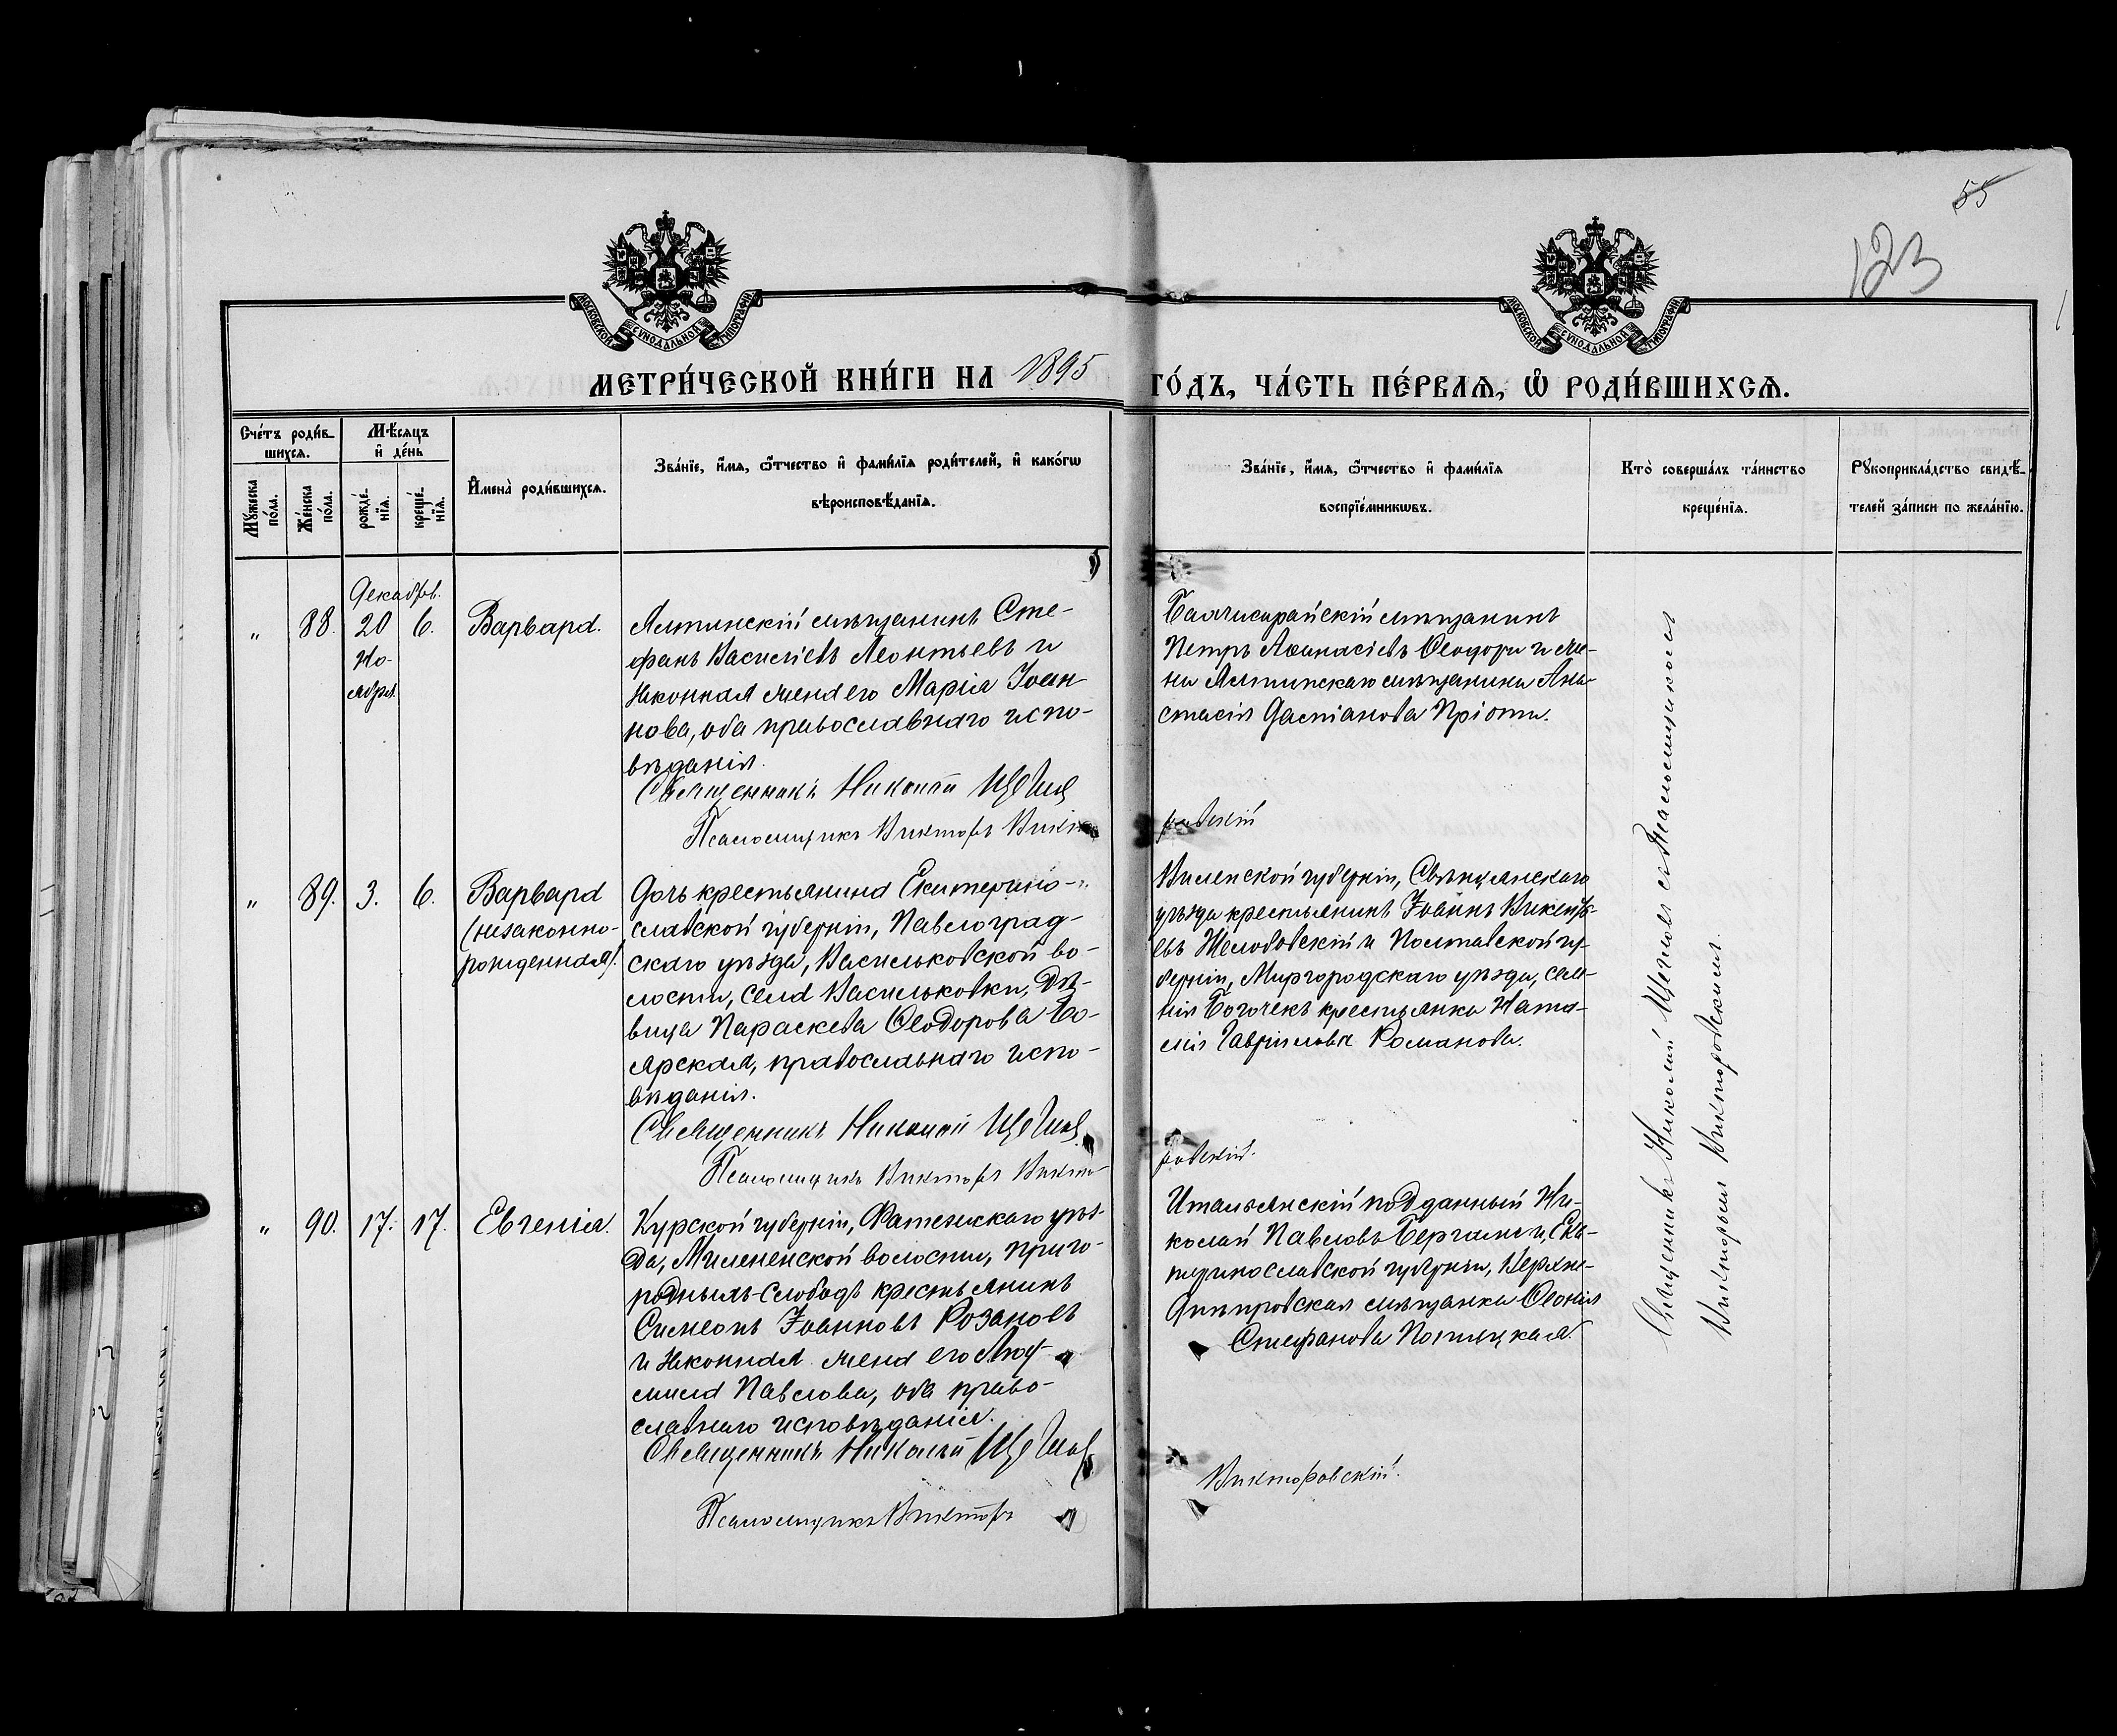 55
123
МОСКОВСКОЙ СУНОДАЛЬНОЙ ТИПОГРАФІИ
МОСКОВСКОЙ СУНОДАЛЬНОЙ ТИПОГРАФІИ
МЕТРИ́ЧЕСКОЙ КНИ́ГИ НА 1895 ГО́ДЪ, ЧА́СТЬ ПЕ́РВАЯ, Ѡ҆ РОДИ́ВШИХСѦ.
Сче́тъ роди́в-
шихсѧ.
Мꙋ́жеска по́ла.
Же́нска по́ла.
Мѣ́сѧцъ
и҆ де́нь
рожде́-
нїѧ.
креще́-
нїѧ.
И҆мена̀ роди́вшихсѧ.
Зва́нїе, и҆́мѧ, ѻ҆́тчество и҆ фами́лїѧ роди́телей, и҆ како́гѡ
вѣроисповѣ́данїѧ.
Зва́нїе, и҆́мѧ, ѻ҆́тчество и҆ фами́лїѧ
воспрїе́мникѡвъ.
Кто̀ соверша́лъ та́инство
креще́нїѧ.
Рꙋкоприкла́дство свидѣ́-
телей за́писи по жела́нїю.
Декабрь.
„ 88. 20 6. Варвара.
Но-
ября.
Ялтинскій мѣщанинъ Сте-
фанъ Василіевъ Леонтьевъ и
законная жена его Марія Іоан-
нова, оба православнаго испо-
вѣданія.
Священникъ Николай Щегловъ
Псаломщикъ Викторъ Викто-
Бахчисарайскій мѣщанинъ
Петръ Аѳанасіевъ Ѳеодори и же-
на Ялтинскаго мѣщанина Ана-
стасія Даміанова Пріоти.
ровскій
„ 89. 3. 6. Варвара
(незаконно-
рожденная).
Дочь крестьянина Екатерино-
славской губерніи, Павлоград-
скаго уѣзда, Васильковской во-
лости, села Васильковки, дѣ-
вица Параскева Ѳеодорова Бо-
ярская, православнаго испо-
вѣданія.
Священникъ Николай Щегловъ
Псаломщикъ Викторъ Викто-
Виленской губерніи, Свѣнцянскаго
уѣзда крестьянинъ Іоаннъ Викентъ-
евъ и Полтавской гу-
берніи, Миргородскаго уѣзда, селе-
нія Богачекъ крестьянка Ната-
лія Гавріилова Романова.
ровскій.
„ 90. 17. 17. Евгенія.
Курской губерніи, Фатежскаго уѣз-
да, Миленской волости, приго-
родныхъ слободъ крестьянинъ
Симеонъ Іоанновъ Розановъ
и законная жена его Люд-
мила Павлова, оба право-
славнаго исповѣданія.
Священникъ Николай Щегловъ
Псаломщикъ Викторъ
Итальянскій подданный Ни-
колай Павловъ Бергамо и Ека-
теринославской губерніи, Верхне-
днѣпровская мѣщанка Ѳеонія
Стефанова
Викторовскій.
Священникъ Николай Щегловъ съ Псаломщикомъ
Викторомъ Викторовскимъ.